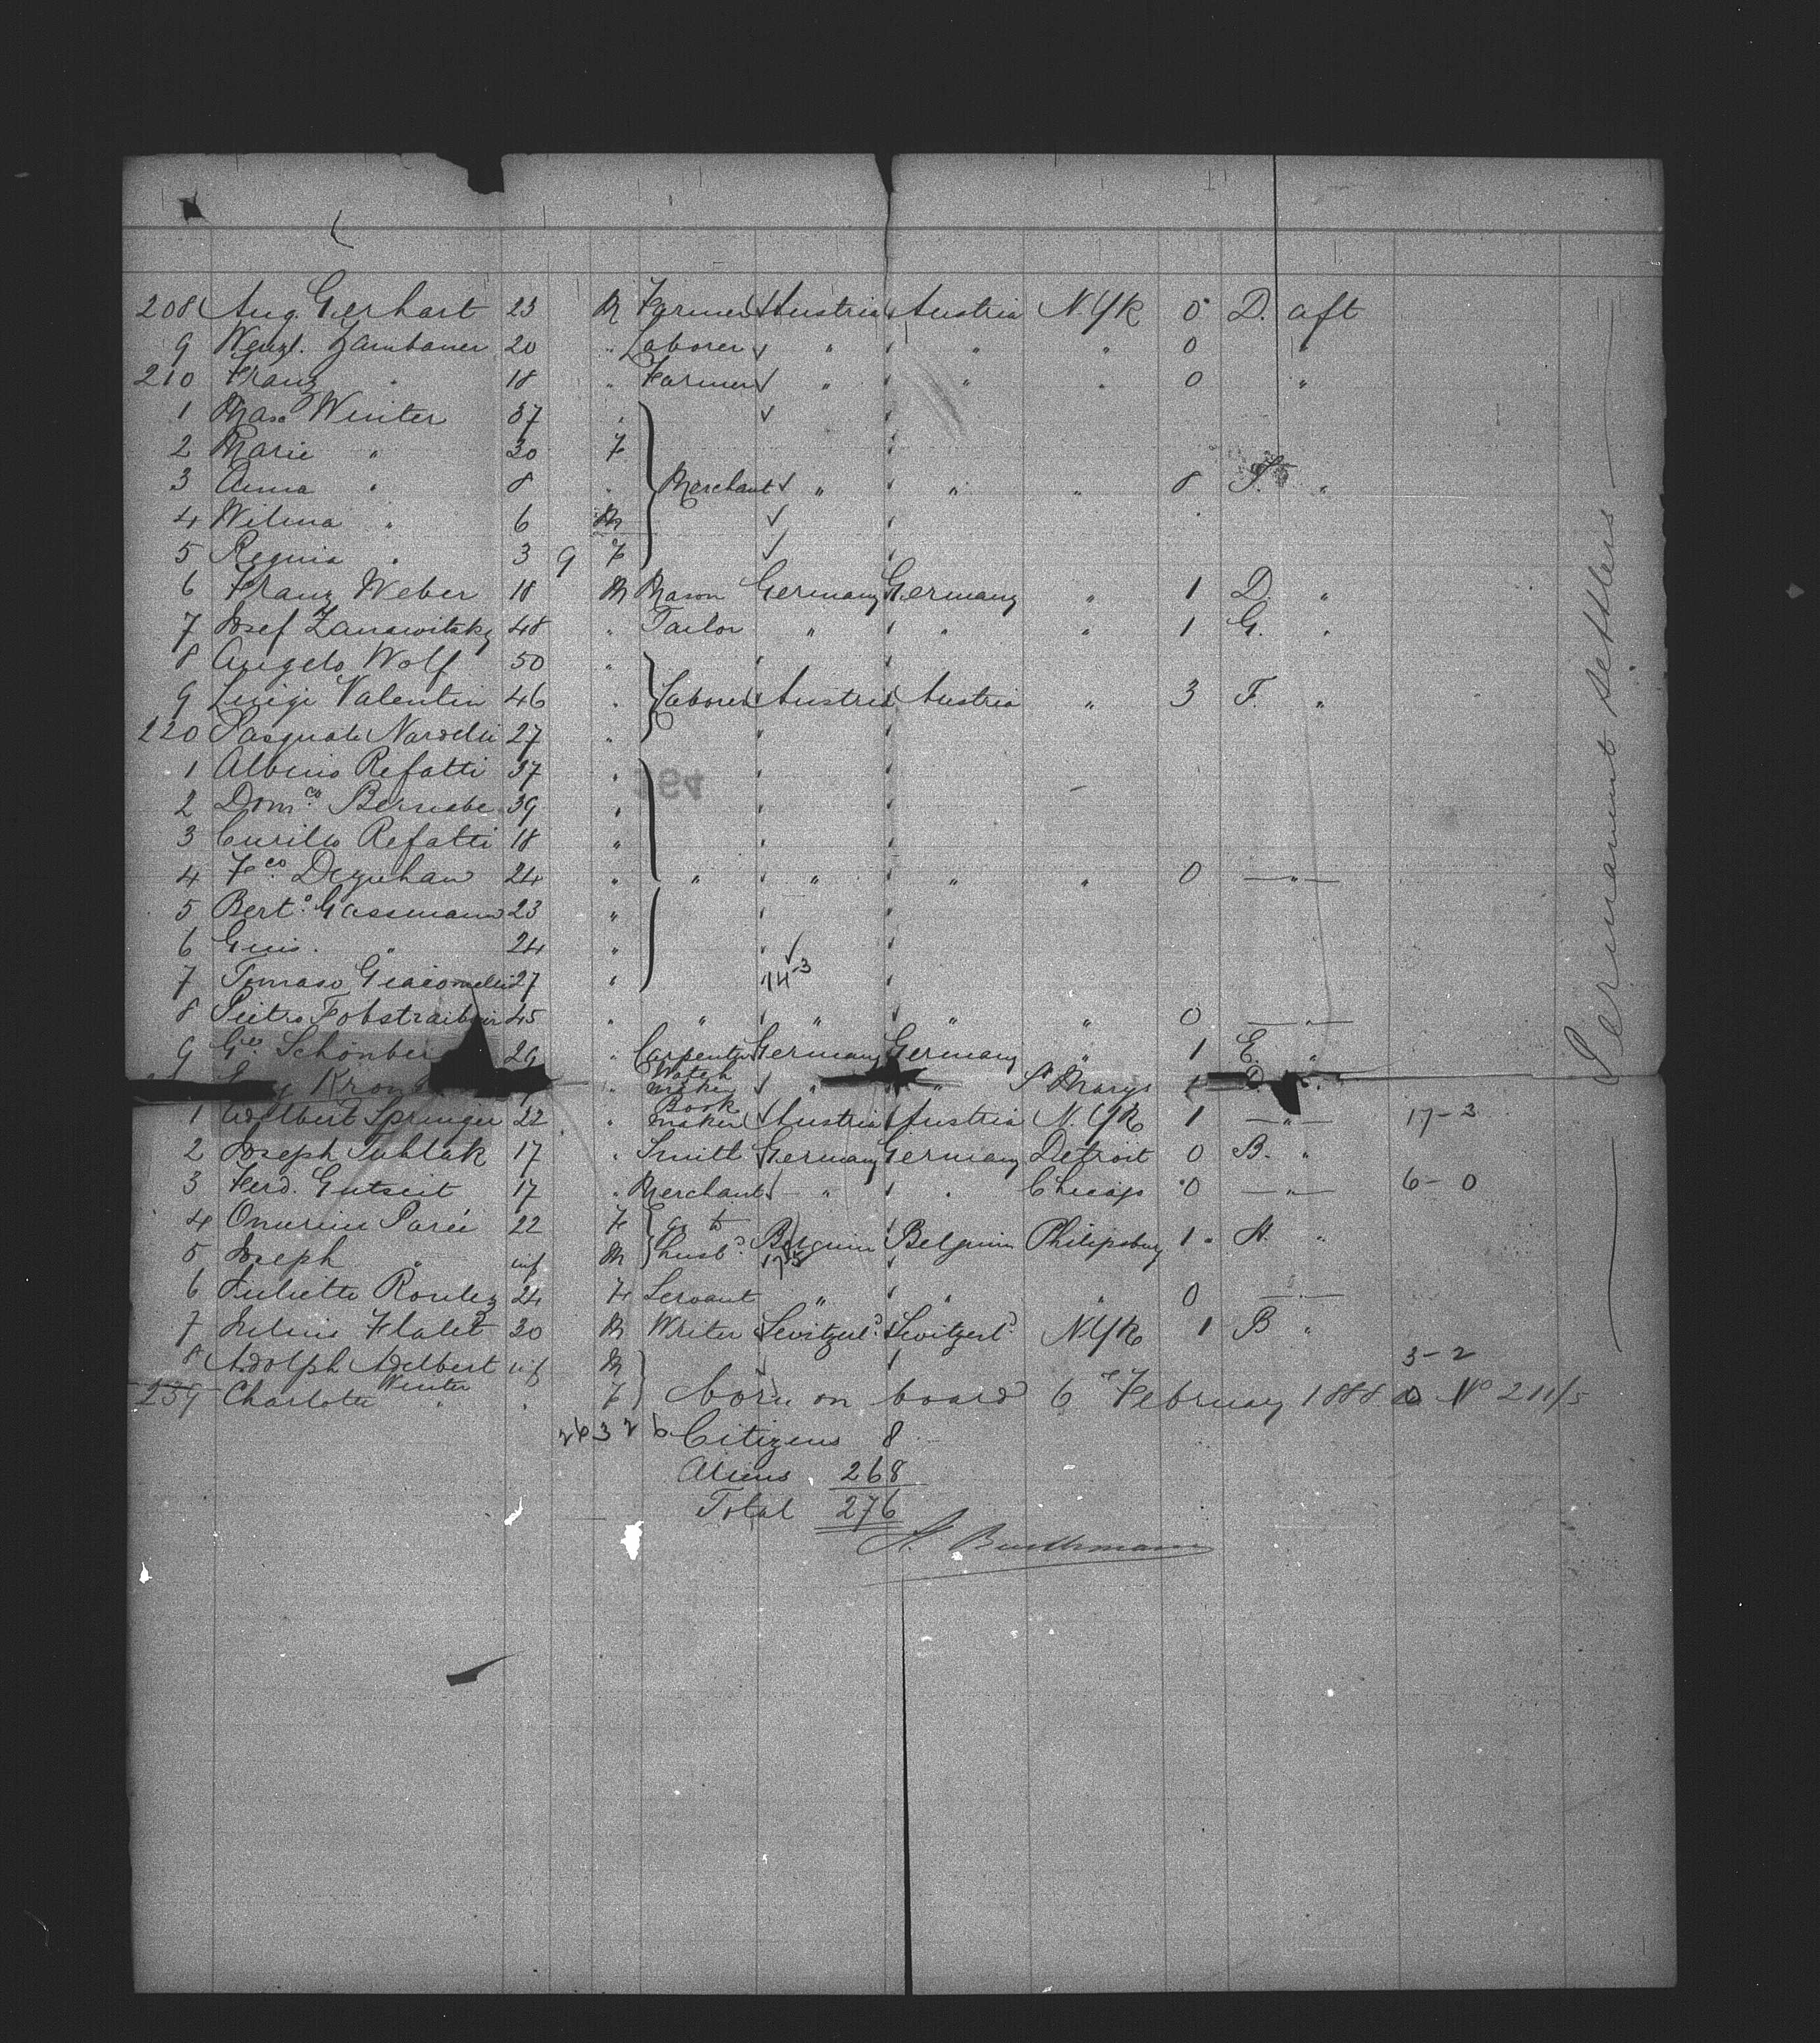 208 Aug. Gerhart 23 M Farmer Austria Austria N.Yk 0 D. aft
9 Wenzl. Zambauer 20 " Laborer " " " 0 "
210 Franz " 18 " Farmer " " " 0 "
1 Max Winter 37 "
2 Marie " 30 F
3 Anna " 8 " Merchant " " " 8 F. "
4 Wilma " 6 M
5 Regina " 3 9 F
6 Franz Weber 18 M Mason Germany Germany " 1 D. "
7 Josef Zanawitzky 48 " Tailor " " " 1 G. "
8 Angelo Wolf 50 "
9 Luigi Valentin 46 " Laborer Austria Austria " 3 F. "
220 Pasquale Nardelli 27 "
1 Albino Refatti 37 "
2 Dom.co Bernabe 39 "
3 Curillo Refatti 18 "
4 F.co Deguhan 24 " " " " " 0 — " —
5 Bert.o Gassmann 23 "
6 Guis. " 24 "
7 Tomaso Giacomelli 27 " 14-3
8 Pietro 45 " " " " " 0 — " —
9 Schönber 29 " Carpenter Germany Germany " 1 E. "
Kron " Watch maker " " St Marys 1 D. "
1 Adelbert Springer 22 " Book maker Austria Austria N.Yk 1 — " — 17-3
2 Joseph Sublak 17 " Smith Germany Germany Detroit 0 B. "
3 Ferd. Gutseit 17 " Merchant " " Chicago 0 — " — 6-0
4 Onurine Parée 22 F go to
5 Joseph " inf M husbd. Belgium Belgium Philipsburg 1 H. "
6 Juliette Roulez 24 F Servant " " " 0 — " —
7 Julius Flalet 30 M Writer Switzerld. Switzerld. N.Yk 1 B "
8 Adolph Adelbert inf M 3-2
239 Charlotte Winter " F born on board 6 February 1888 No 211/5
Citizens 8
Aliens 268
Total 276
Permanent settlers